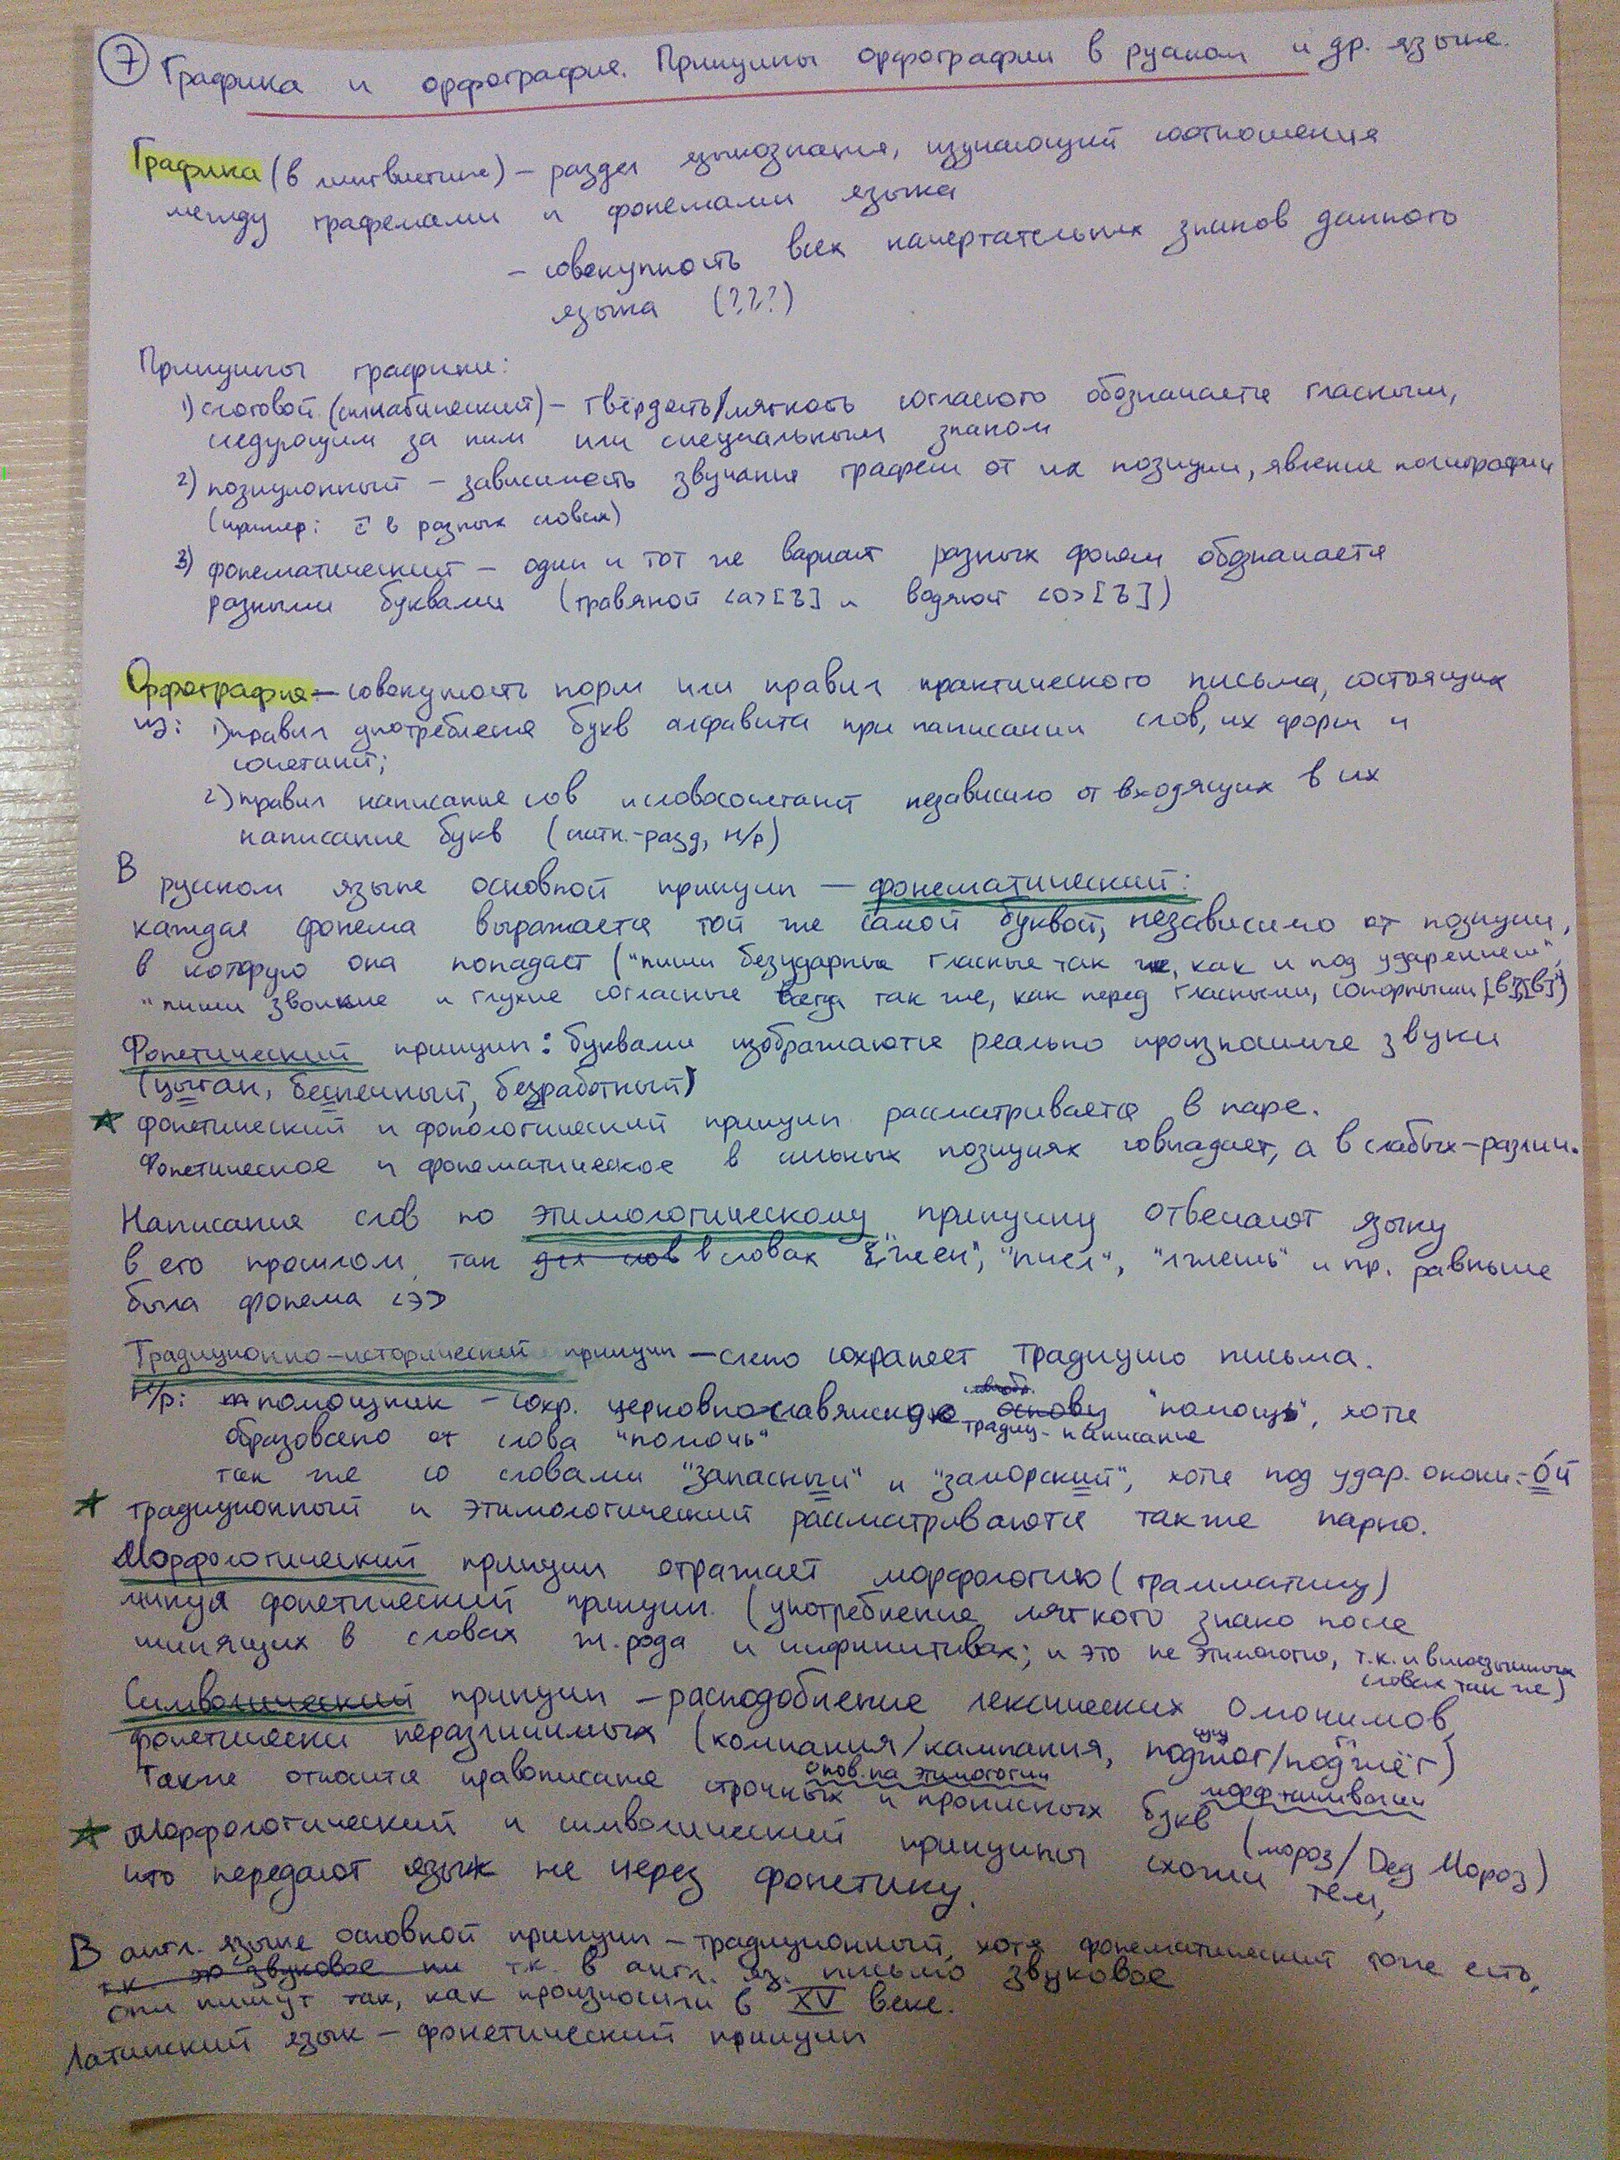 7 Графика и орфография. Принципы орфографии в русском и др. языке.
Графика (в лингвистике) – раздел языкознания, изучающий соотношения
между графемами и фонемами языка
– совокупность всех начертательных знаков данного
языка (???)
Принципы графики:
1) слоговой (силлабический) – твёрдость/мягкость согласного обозначается гласным,
следующим за ним или специальным знаком
2) позиционный – зависимость звучания графем от их позиции, явление полиграфии
(пример: в разных словах)
3) фонематический – один и тот же вариант разных фонем обозначается
разными буквами (травяной <а>[ъ] и водяной <о>[ъ])
Орфография – совокупность норм или правил практического письма, состоящих
из: 1) правил употребления букв алфавита при написании слов, их форм и
сочетаний;
2) правил написания слов и словосочетаний независимо от входящих в их
написание букв (слитн.-разд, н/р)
В русском языке основной принцип – фонематический:
каждая фонема выражается той же самой буквой, независимо от позиции,
в которую она попадает ("пиши безударные гласные так же, как и под ударением",
"пиши звонкие и глухие согласные всегда так же, как перед гласными, сонорными, [в],[в']")
Фонетический принцип: буквами изображаются реально произносимые звуки
(цыган, беспечный, безработный)
★ фонетический и фонологический принцип рассматривается в паре.
Фонетическое и фонематическое в сильных позициях совпадает, а в слабых – различ.
Написания слов по этимологическому принципу отвечают языку
в его прошлом, так для слов в словах "шёл", "пчёл", "лжёшь" и пр. раньше
была фонема <э>
Традиционно-исторический принцип – слепо сохраняет традицию письма.
Н/р: помощник – сохр. церковнославянскую основу традиц. написание "помощь", хотя
образовано от слова "помочь"
так же со словами "запасный" и "заморский", хотя под удар. оконч. -ой
★ традиционный и этимологический рассматриваются также парно.
Морфологический принцип отражает морфологию (грамматику)
минуя фонетический принцип. (употребление мягкого знака после
шипящих в словах ж. рода и инфинитивах; и это не этимология, т.к. и в иноязычных
словах так же)
Символический принцип – расподобление лексических омонимов,
фонетически неразличимых (компания/кампания, поджог/поджёг)
Также относится правописание строчных и прописных букв (мороз/Дед Мороз)
основ. на этимологии
★ Морфологический и символический принципы схожи тем,
что передают язык не через фонетику.
В англ. языке основной принцип – традиционный, хотя фонематический тоже есть,
т.к. это звуковое пи т.к. в англ. яз. письмо звуковое
они пишут так, как произносили в XV веке.
Латинский язык – фонетический принцип